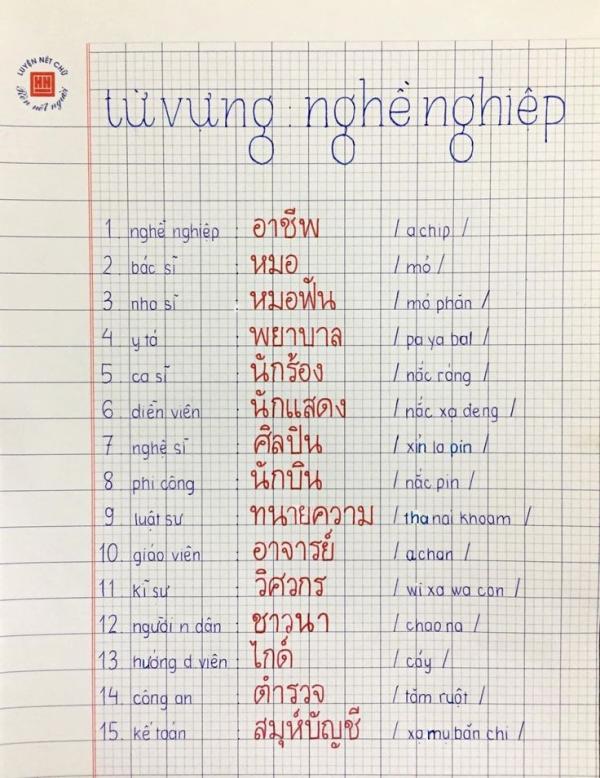 LUYỆN NÉT CHỮ
HN
Rèn nết người
từ vựng nghề nghiệp
1 nghề nghiệp : อาชีพ / achip /
2 bác sĩ : หมอ / mỏ /
3 nha sĩ : หมอฟัน / mỏ phăn /
4 y tá : พยาบาล / pa ya bal /
5 ca sĩ : นักร้อง / nắc ráng /
6 diễn viên : นักแสดง / nắc xa deng /
7 nghệ sĩ : ศิลปิน / xỉn la pin /
8 phi công : นักบิน / nắc pin /
9 luật sư : ทนายความ / tha nai khoam /
10 giáo viên : อาจารย์ / achan /
11 kĩ sư : วิศวกร / wi xa wa con /
12 người n dân : ชาวนา / chao na /
13 hướng d viên : ไกด์ / cáy /
14 công an : ตำรวจ / tăm ruột /
15 kế toán : สมุห์บัญชี / xa mu băn chi /